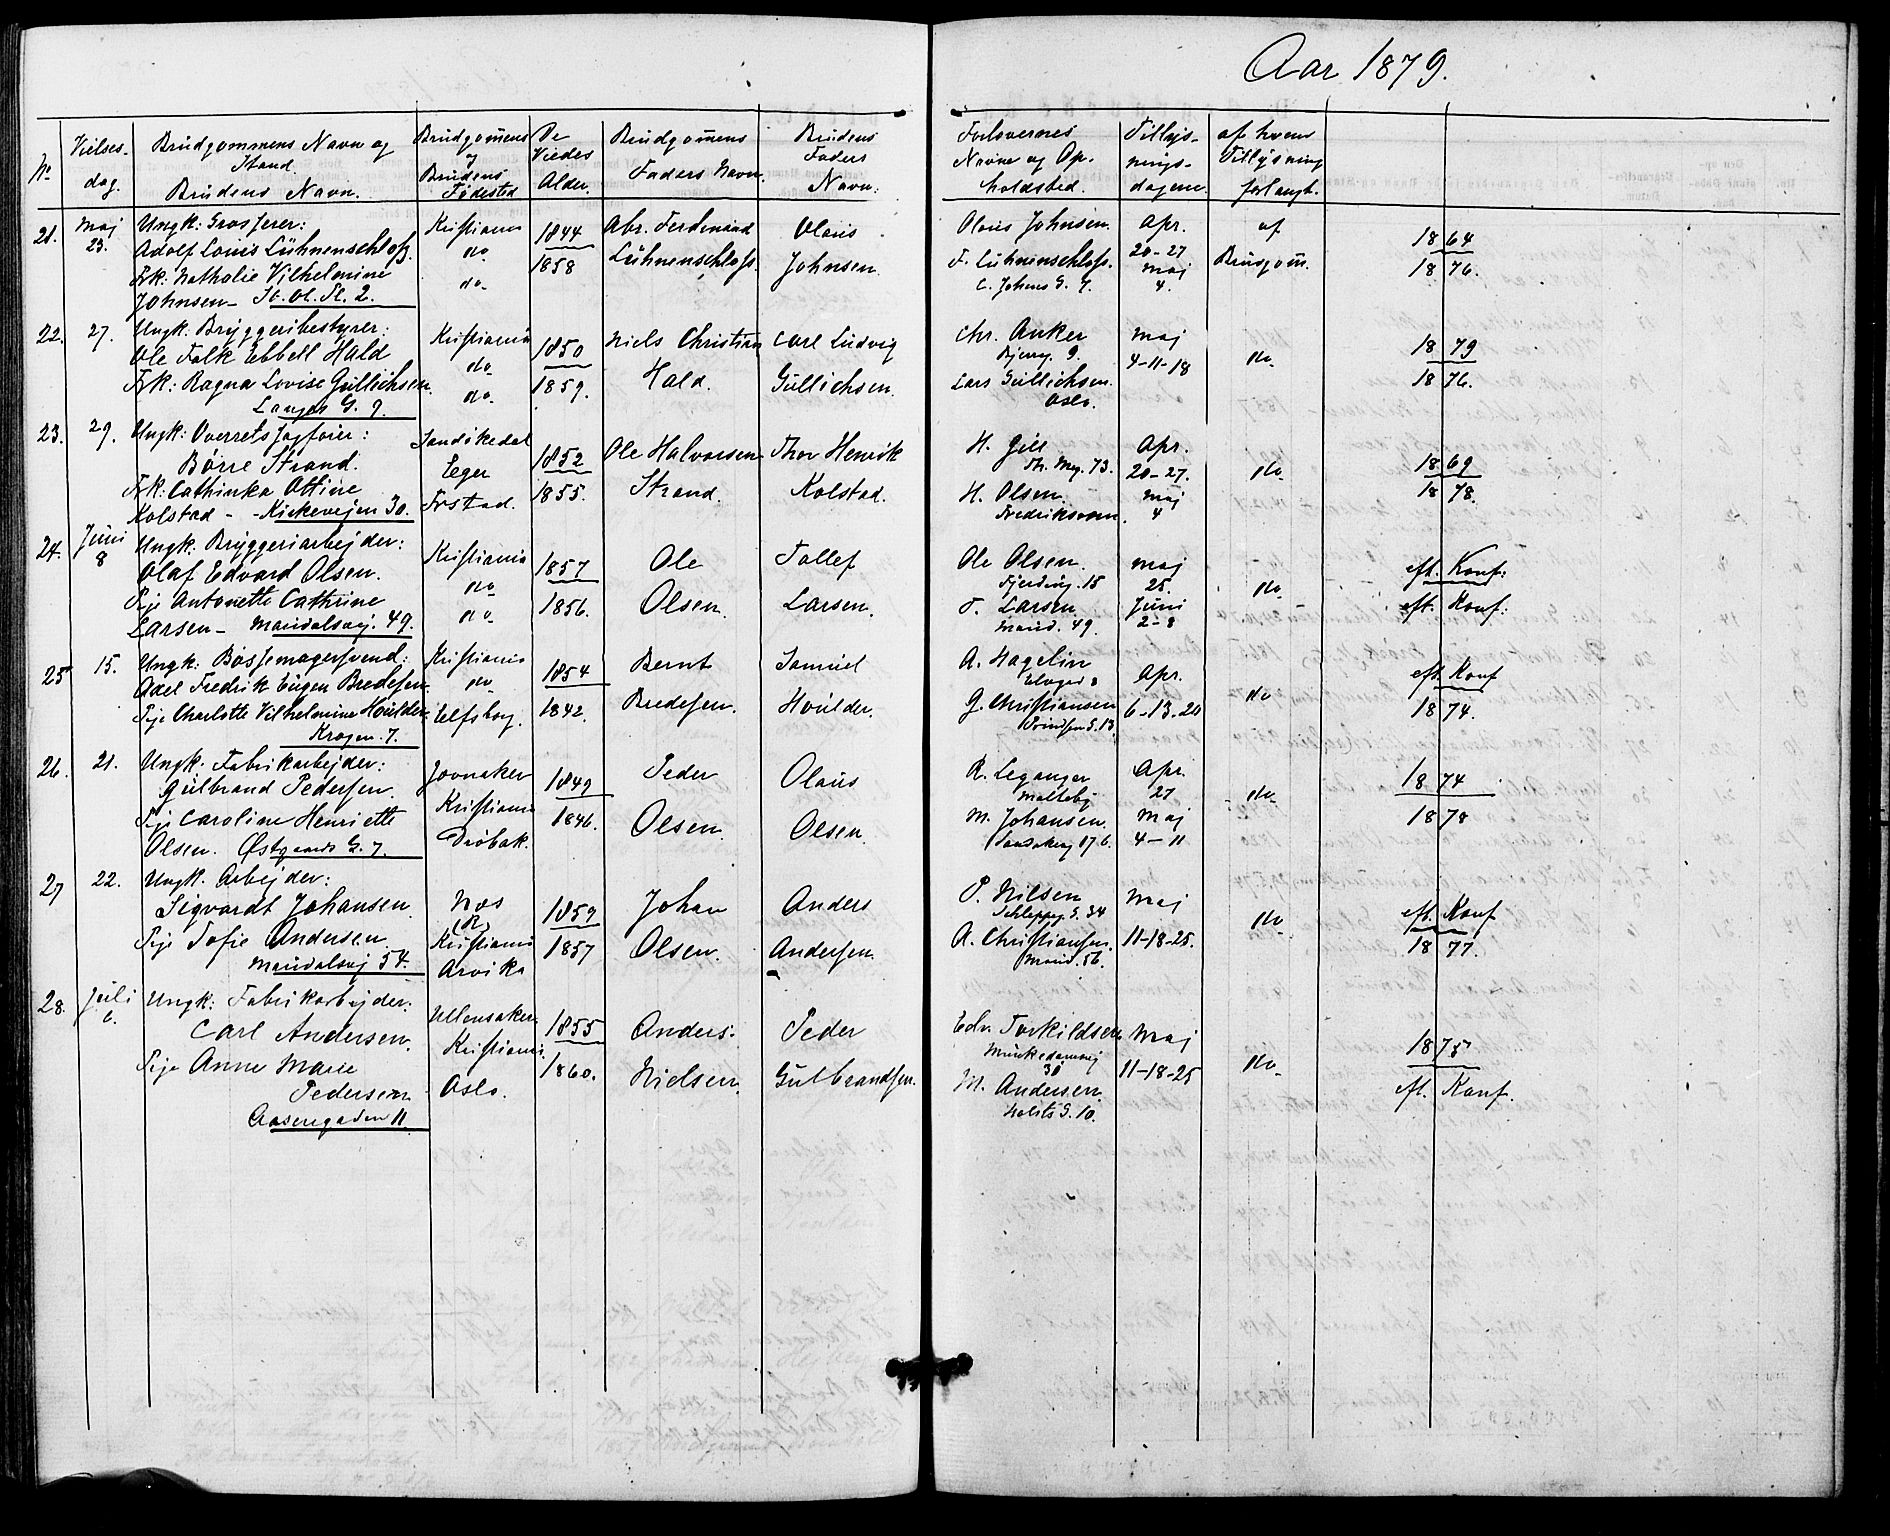 Aar 1879.
No Vielsesdag. Brudgommens Navn og Stand. Brudens Navn. Brudgomens og Brudens Fødested De Viedes Alder. Brudgomens Faders Navn. Brudens Faders Navn. Forlovernes Navne og Opholdsted. Tillysningsdagene. af hvem Tillysning forlangt.
21. Maj 23.
Ungk: Grosserer:
Adolf Louis Lühnenschloss.
Frk: Nathalie Vilhelmine
Johnsen - St. Ol. Pl. 2.
Kristiania
do
do
1844
1858
Abr. Ferdinand
Lühnenschloss.
Olaus
Johnsen.
Olaus Johnsen.
F. Lühnenschloss.
C. Johans G. 7.
Apr.
20-27
Maj
4.
af
Brudgom.
1864
1876.
22. 27.
Ungk: Bryggeribestyrer:
Ole Falk Ebbell Hald
Frk: Ragna Lovise Gullichsen.
Langes G. 9.
Kristiania
do
do
1850
1859.
Niels Christian
Hald.
Carl Ludvig
Gullichsen.
Chr. Anker
9.
Lars Gullichsen.
Oslo.
Maj
4-11-18
do
1879
1876.
23. 29.
Ungk: Overretssagfører:
Børre Strand.
Frk: Cathinka Ottine
Kolstad - - Kirkevejen 30.
Sandskedal
Eger
Frstad.
1852
1855.
Ole Halvorsen
Strand.
Thor Henrik
Kolstad.
H. Gill
Th. Mey. 73.
H. Olsen.
Apr.
20-27.
Maj
4
do
1869
1878.
24. Juni 8
Ungk: Bryggeriarbejder:
Olaf Edvard Olsen.
Pige Antonette Cathrine
Larsen - Maridalsvej. 49.
Kristiania
do
do
1857
1856.
Ole
Olsen.
Tollef
Larsen.
Ole Olsen.
Fjerding. 15
T. Larsen
Marid. 49.
Maj
25.
Juni
2-8
do
eft. Konf:
eft. Konf:
25 15.
Ungk: Bøssemagersvend:
Axel Fredrik Eugen Bredesen
Pige Charlotte Vilhelmine Houlder.
Krogen. 7.
Kristiania
do
Elfsborg.
1854
1842.
Bernt
Bredesen.
Samuel
Houlder.
A. Hagelin
G. Christiansen
G. 13.
Apr.
6-13-20
do
eft. Konf
1874.
26. 21.
Ungk: Fabrikarbejder:
Gulbrand Pedersen.
Pige Caroline Henriette
Olsen. Østgaards G. 7.
Jevnaker
Kristiania
Drøbak.
1849
1846.
Peder
Olsen.
Olaus
Olsen.
R. Leganger
Malteby
M. Johansen.
Sandakerv 17 b.
Apr.
27
Maj
4-11
do
1874
1878
27 22.
Ungk. Arbejder:
Sigvardt Johansen.
Pige Sofie Andersen.
Maridalsvej 54.
Næs
(R)
Kristiania
Arvika
1859
1857
Johan
Olsen.
Anders
Andersen.
P. Nilsen
Schleppeg. G. 34
A. Christiansen.
Marid. 56.
Maj
11-18-25.
do
eft. Konf
1877.
28. Juli 6.
Ungk: Fabrikarbejder:
Carl Andersen.
Pige Anne Marie
Pedersen
Aasengaden 11.
Ullensaker
Kristiania.
Oslo.
1855
1860.
Anders
Nielsen.
Peder
Gulbrandsen.
Edv. Torkildsen
Munkedamsvej
30
M. Andersen.
Holsts G. 10.
Maj
11-18-25
do
1875
eft. Konf.